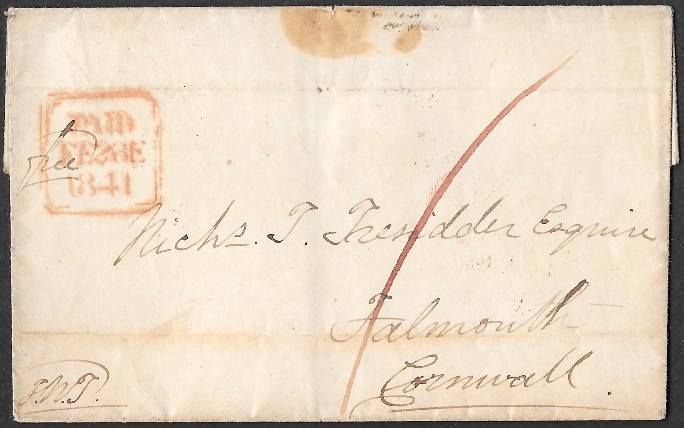 PAID
FE26E
1841
free
Nichs. T. Tresidder Esquire
Falmouth
Cornwall.